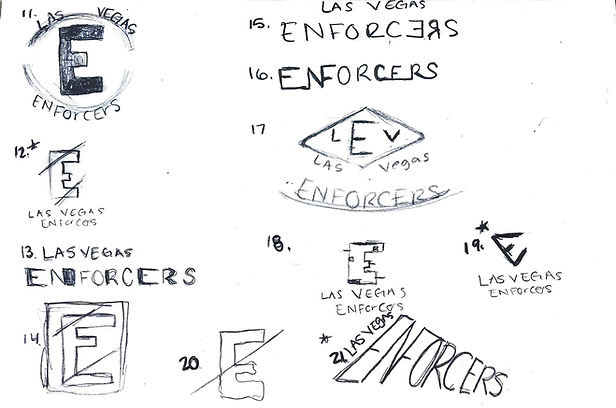 11. LAS VEGAS
E
ENFORCERS
12.*
E
LAS VEGAS
ENFORCERS
13. LAS VEGAS
ENFORCERS
14.
E
LAS VEGAS
15. ENFORCERS
16. ENFORCERS
17
LEV
LAS Vegas
ENFORCERS
18.
E
LAS VEGAS
ENFORCERS
19.*
E
LAS VEGAS
ENFORCERS
20.
E
*
21. LAS VEGAS
ENFORCERS